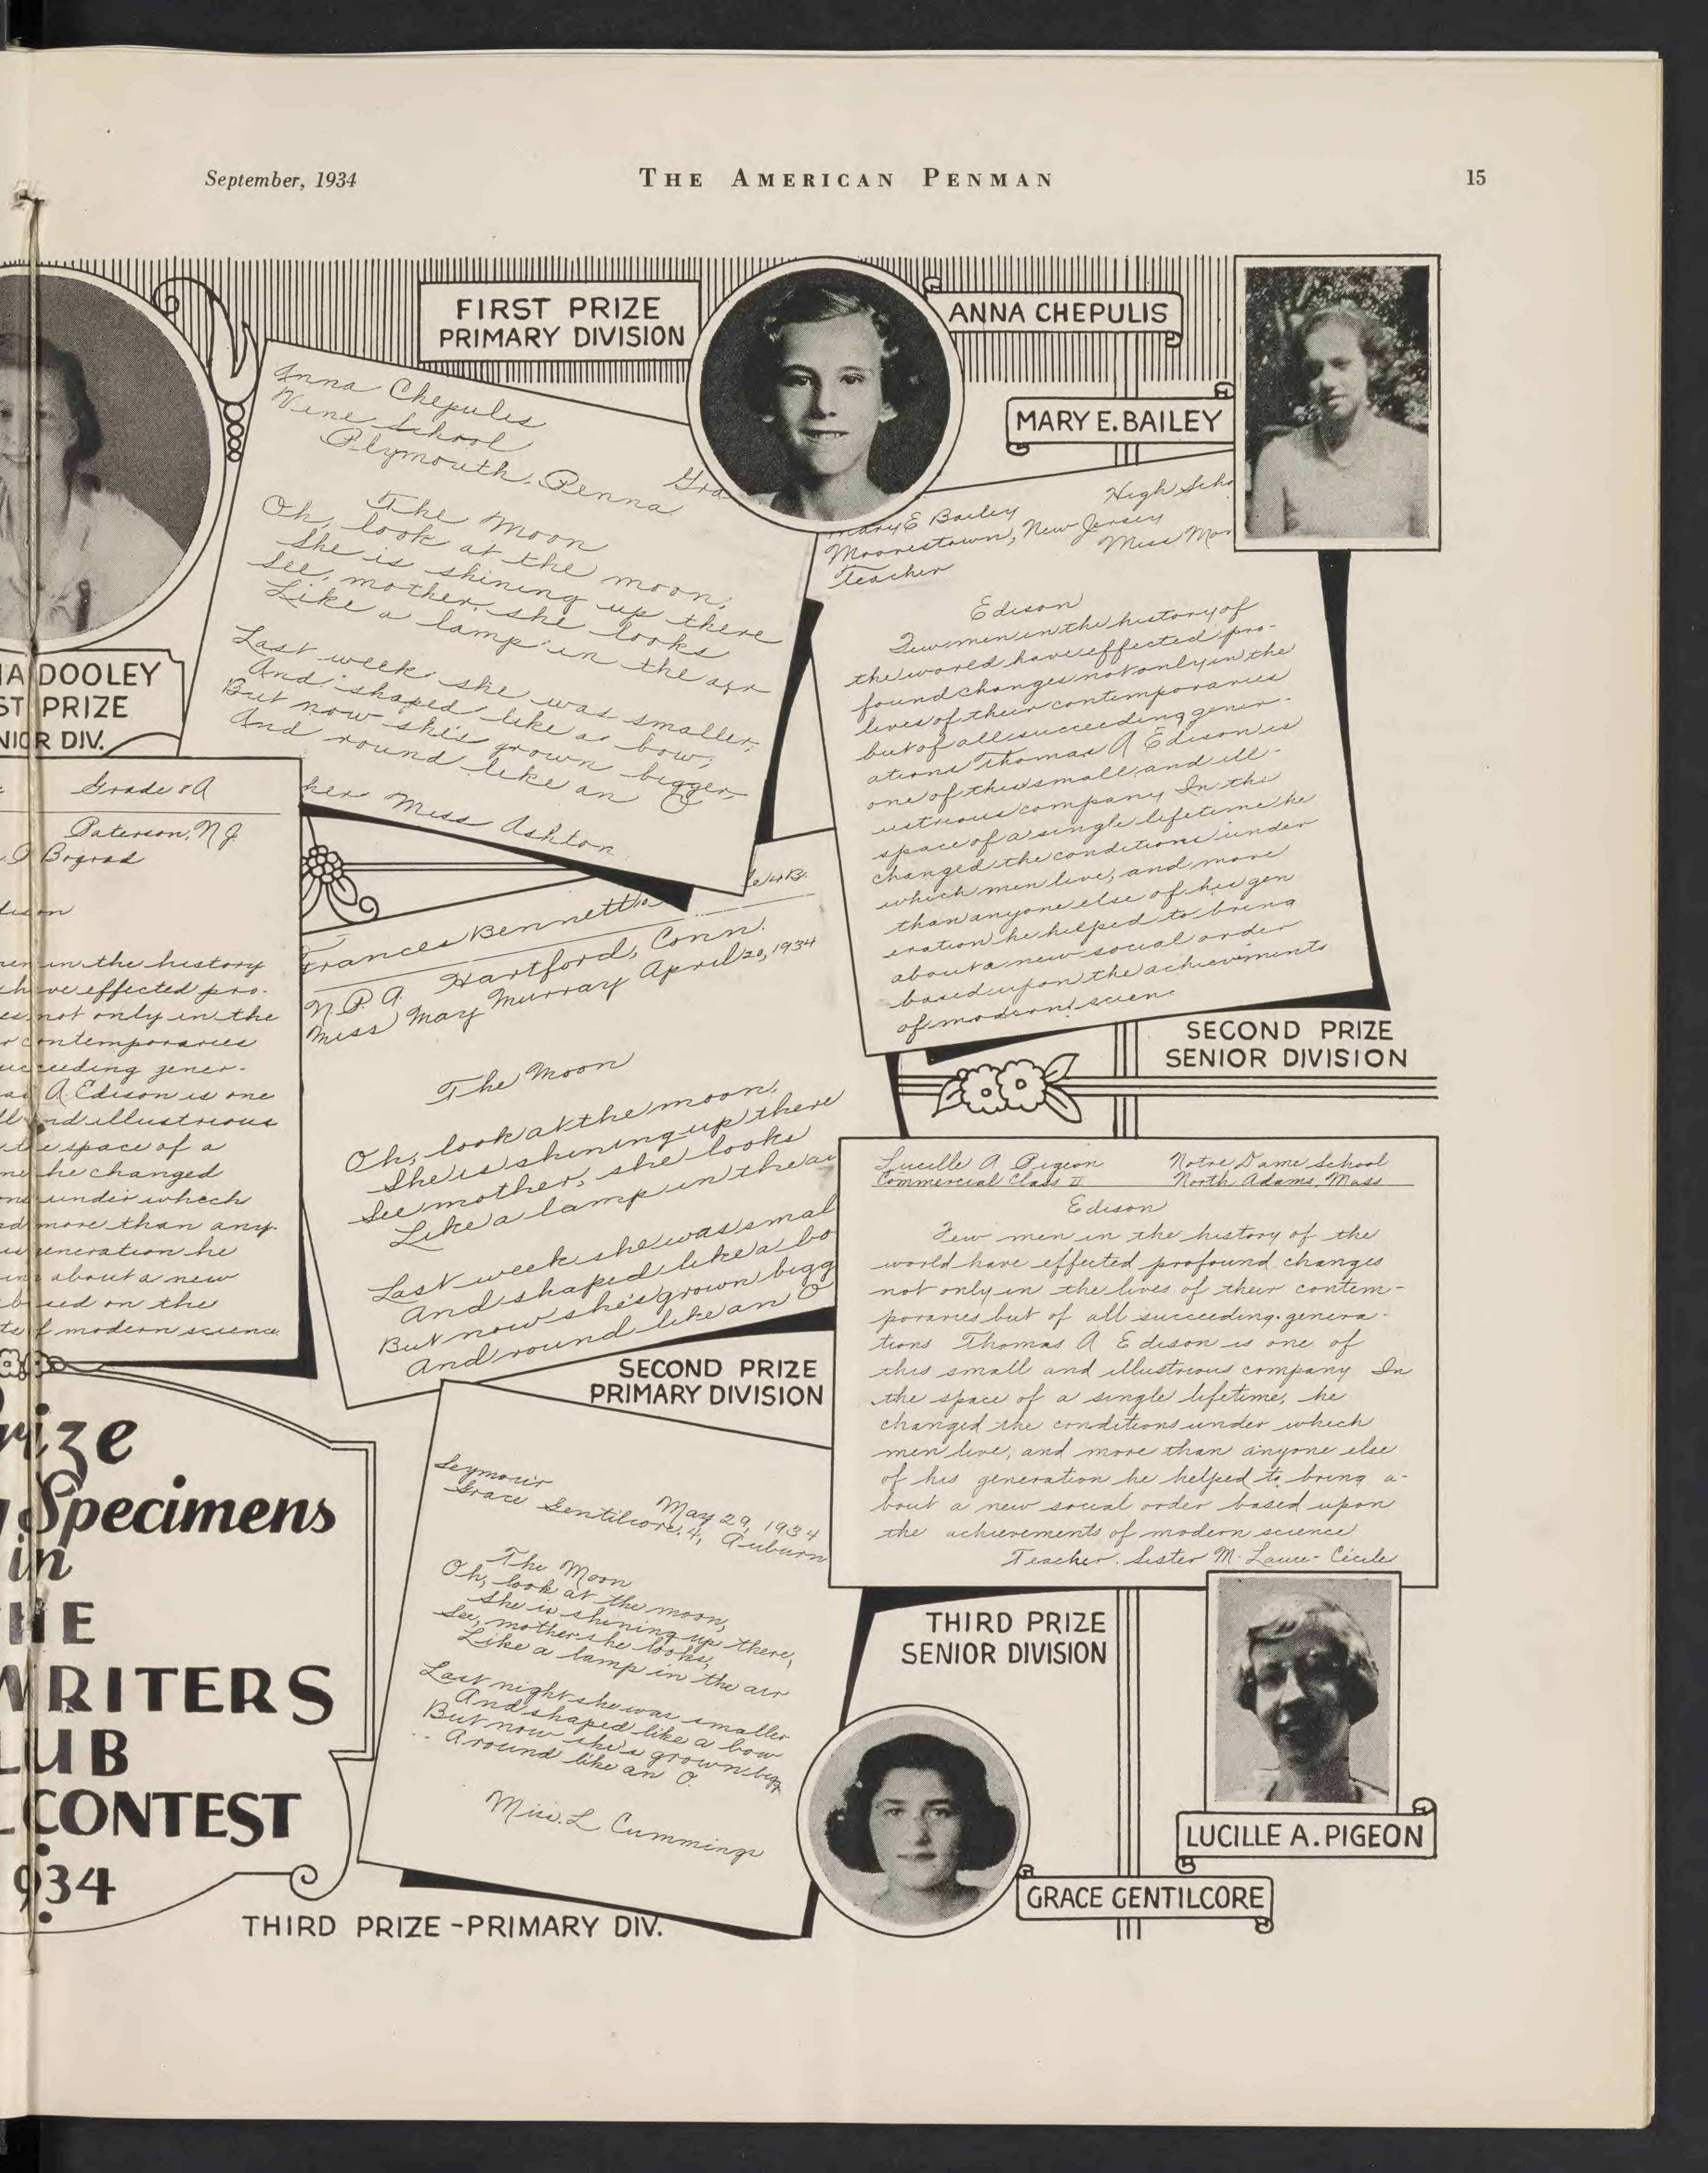 September, 1934
THE AMERICAN PENMAN
15
FIRST PRIZE
PRIMARY DIVISION
ANNA CHEPULIS
MARY E. BAILEY
Anna Chepulis
Vine School
Plymouth, Penna.
Gra
The Moon
Oh, look at the moon,
She is shining up there
See, mother, she looks
Like a lamp in the air
Last week she was smaller,
And shaped like a bow,
But now she's grown bigger,
And round like an O
her Miss Ashton
High Scho
Mary E Bailey
Moorestown, New Jersey
Miss Mor
Teacher
Edison
Few men in the history of
the world have effected pro-
found changes not only in the
lives of their contemporaries
but of all succeeding gener-
ations Thomas A Edison is
one of this small and ill-
ustrious company In the
space of a single lifetime he
changed the conditions under
which men live, and more
than anyone else of his gen
eration he helped to bring
about a new social order
based upon the achievements
of modern scienc
SECOND PRIZE
SENIOR DIVISION
A DOOLEY
ST PRIZE
NIOR DIV.
Grade 8A
Paterson, N J.
Bograd
dison
men in the history
have effected pro-
es not only in the
r contemporaries
ucceeding gener-
as A. Edison is one
ll and illustrious
the space of a
me he changed
ons under which
nd more than any-
is generation he
ing about a new
based on the
ts of modern science
Frances Bennett
le 4B.
N. P. A. Hartford, Conn.
Miss May Murray April 20, 1934
The Moon
Oh, look at the moon,
She is shining up there
See mother, she looks
Like a lamp in the ai
Last week she was smal
And shaped like a bo
But now she's grown bigg
And round like an O
SECOND PRIZE
PRIMARY DIVISION
Lucille A Pigeon Notre Dame School
Commercial Class II North Adams, Mass
Edison
Few men in the history of the
world have effected profound changes
not only in the lives of their contem-
poraries but of all succeeding genera-
tions Thomas A Edison is one of
this small and illustrious company In
the space of a single lifetime, he
changed the conditions under which
men live, and more than anyone else
of his generation he helped to bring a-
bout a new social order based upon
the achievements of modern science
Teacher. Sister M. Laure-Cécile
THIRD PRIZE
SENIOR DIVISION
rize
Specimens
in
HE
WRITERS
LUB
CONTEST
934
Seymour May 29, 1934
Grace Gentilcore. 4, Auburn
The Moon
Oh, look at the moon,
She is shining up there,
See, mother she looks,
Like a lamp in the air
Last night she was smaller
And shaped like a bow
But now she's grown bigg
Around like an O.
Miss. L Cummings
THIRD PRIZE - PRIMARY DIV.
LUCILLE A. PIGEON
GRACE GENTILCORE